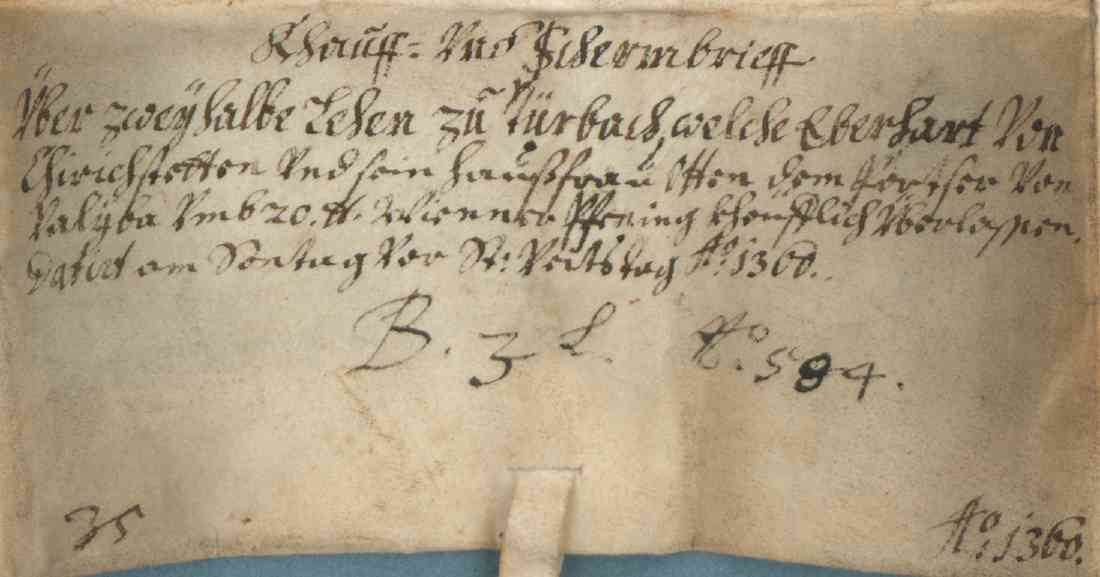 Khauff= Vnd Schermbrieff
Vber zwey halbe Lehen zu Dürbach, welche Eberhart Von
Chirichstetten Vnd sein haußfrau Otten dem Von
Vmb 20. tt. Wienner Pfening kheufflich Vberlassen.
Datirt am Sontag Vor St: Veitstag Ao: 1360.
B. 3 L. No. 584.
35
Ao: 1360.